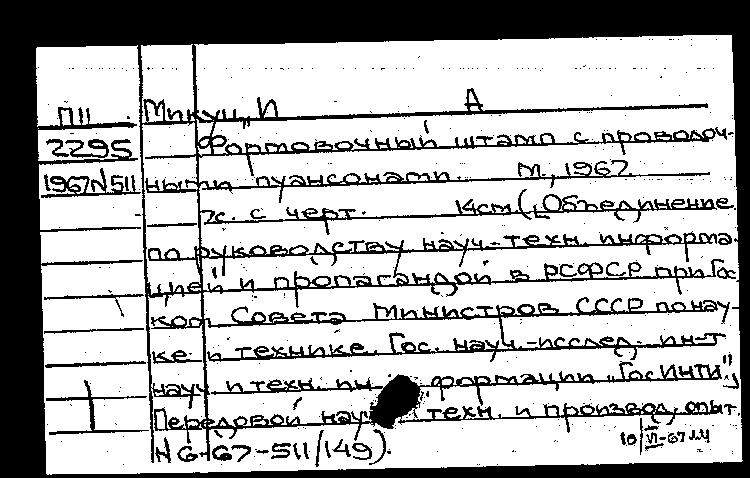 П11 Микуц, И А
2295 Формовочный штамп с проволоч-
1967 N 511 ными пуансонами. М., 1967.
7с. с черт. 14см. („Объединение
по руководству науч.-техн. информа-
цией и пропагандой в РСФСР при Гос
ком Совета Министров СССР по нау-
ке и технике. Гос. науч.-исслед. ин-т
науч и техн. ин формации „ГосИНТИ",
Передовой науч техн. и производ. опыт
N 6-67-511/149).
10/VI-67